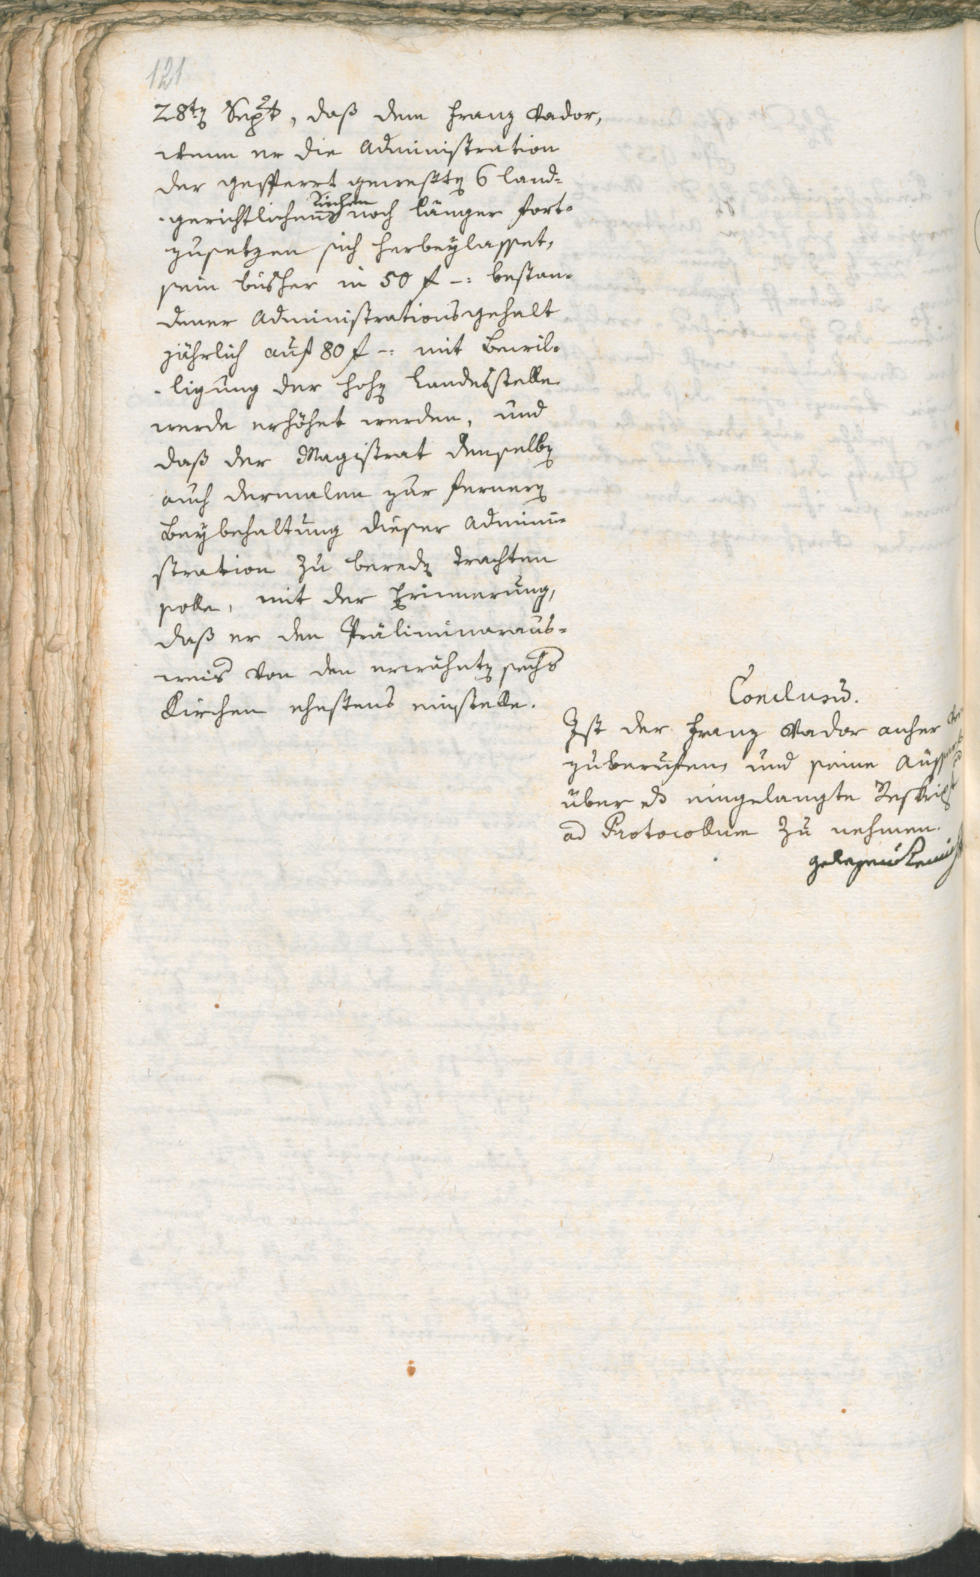 121
28ten Sept, daß dem Franz Vador,
wenn er die Administration
der gesperrt gewesten 6 land-
gerichtlichen Kirchen noch länger fort-
zusetzen sich herbeylasset,
sein bisher in 50 f -: bestan-
dener Administrationsgehalt
jährlich auf 80 f -: mit Bewil-
-ligung der hohen Landesstelle
werde erhöhet werden, und
daß der Magistrat denselben
auch dermalen zur fernern
Beybehaltung dieser Admini-
stration zu bereden trachten
solle, mit der Erinnerung,
daß er den Präliminaraus-
weis von den erwähnten sechs
Kirchen ehestens einstelle.
Conclusum.
Ist der Franz Vador anher
zuberufen, und seine
über das eingelangte Reskript
ad Protocollum zu nehmen.